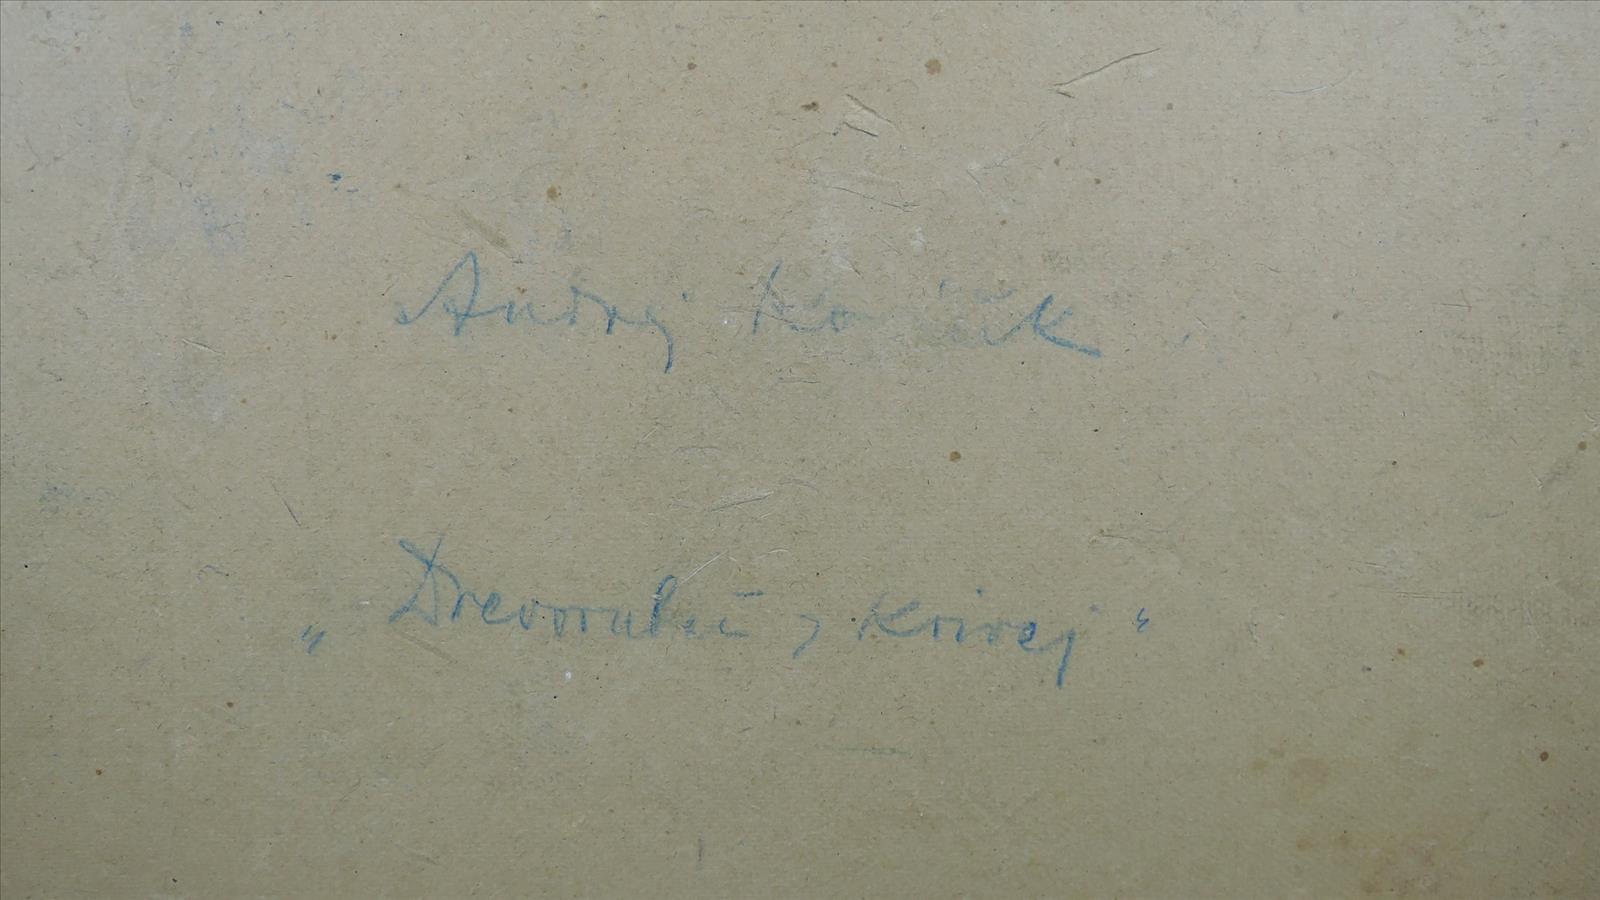 Andrej Kováčik
„Drevorubač z Krivej“